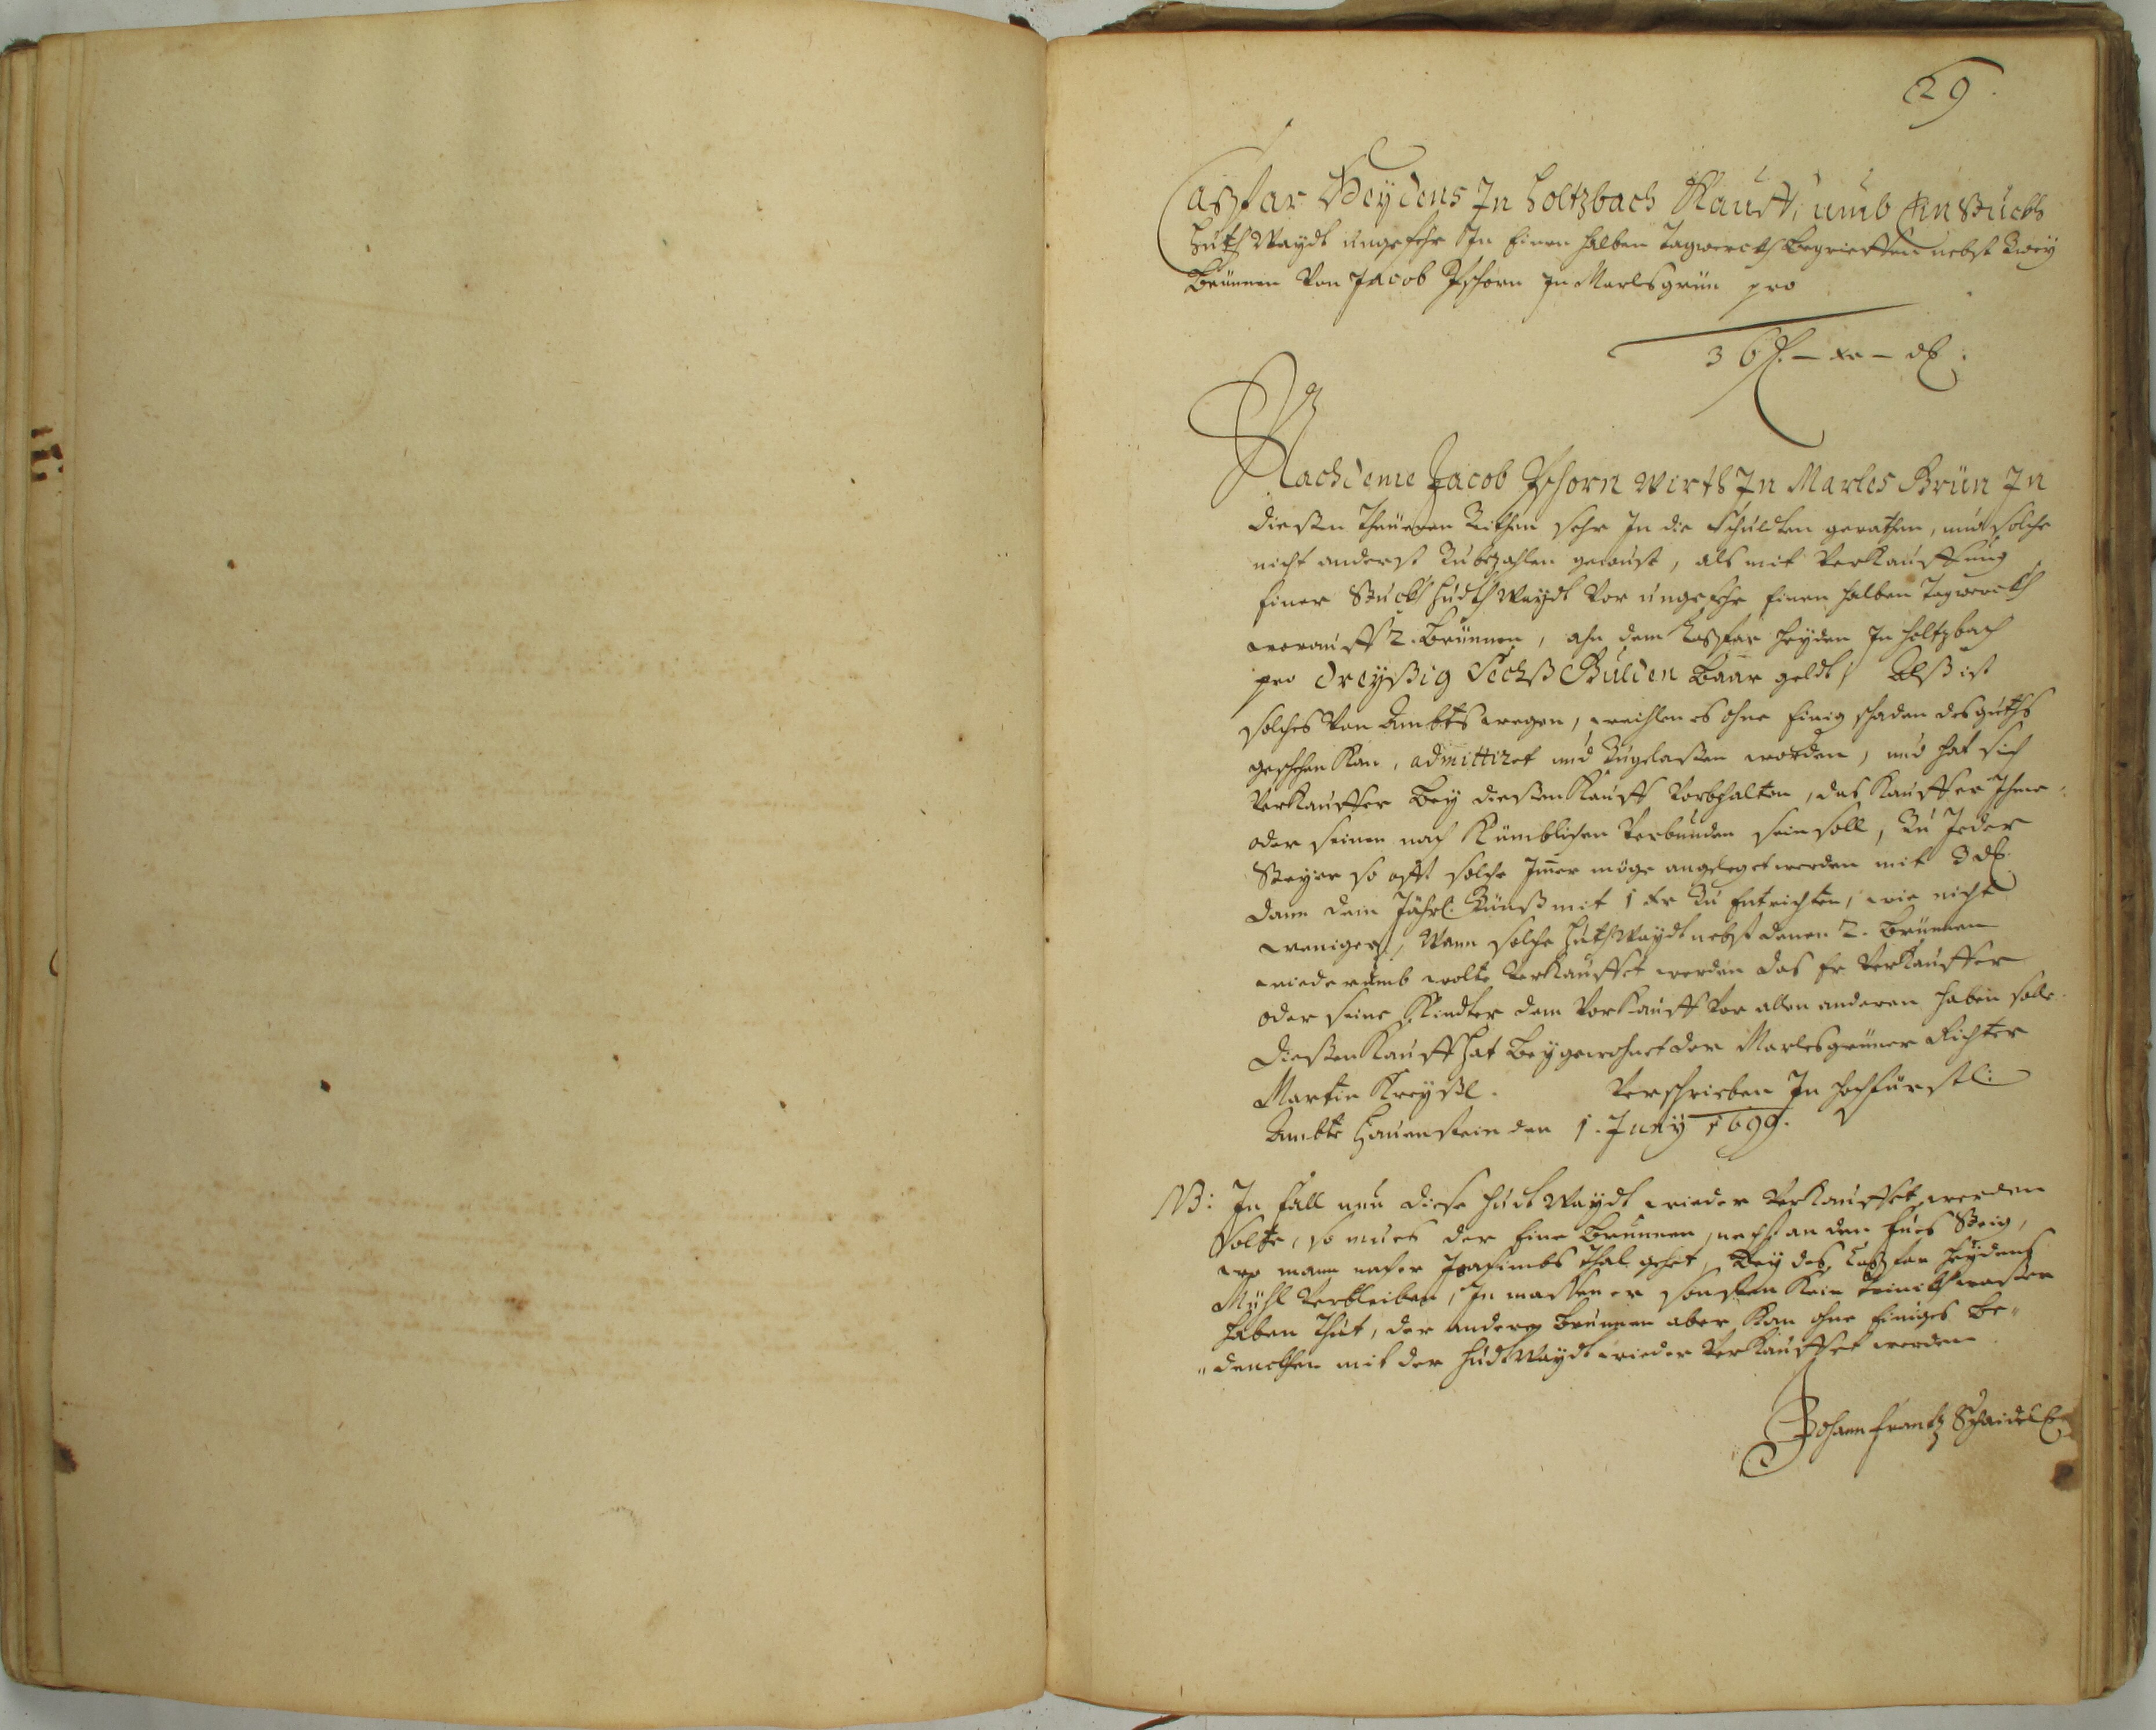 29.
Caspar Heydens In Holtzbach Kauff, umb Ein Stuckh
Huth Waydt ungefehr In Einen halben Tagwerckh begrieffen nebst Zwey
Brünnen Von Jacob Zschorn In Marlsgrün pro
36 f. – xr – dl.
Nachdeme Jacob Zschorn Wirth In Marles Grün In
dießen theüeren Zeithen sehr In die Schulden gerathen, und solche
nicht anderst Zubezahlen gewust, als mit Verkauffung
Einer Stuckh Hudt Waydt Vor ungefehr Einen halben Tagwerckh
worauff 2. Brünnen, ahn dem Caspar Heyden In Holtzbach
pro dreyßig Sechß Gulden Baar geldt, Alß ist
solches Von Ambts wegen, weihlen es ohne Einig schaden des guths
geschehen Kan, admittiret und Zugelaßen worden, und hat sich
Verkauffer bey dießen Kauff Vorbehalten, das Kauffer Ihme
oder seinen nach Kümblichen Verbunden sein soll, Zu Jeder
Steyer so offt solche Imer möge angeleget werden mit 3 dl.
dann dem Jährl. Zünß mit 1 xr Zu Entrichten, wie nicht
weniger, Wann solche Huth Waydt nebst denen 2. Brünnen
wiederumb wolte Verkauffet werden das Er Verkauffer
oder seine Kindter dem Vorkauff Vor allen anderen haben solle.
Dießen Kauff hat beygewohnet der Marlesgrüner Richter
Martin Kreyßl. Verschrieben In Hochfürstl:
Ambte Hauenstein den 1. Juny 1699.
NB: In fall nun diese Hudt Waydt wieder Verkauffet werden
solte, so mues der Eine Brunnen, nechst an den Fues Steig,
wo mann nacher Joachimbs Thal gehet, Bey des Caspar Heydens
Mühl Verbleiben, In massen er sonsten Kein trinckhwasser
haben thut, der andere Brunnen aber Kan ohne Einiges be"
"denckhen mit der Hudt Waydt wieder Verkauffet werden
Johann Frantz